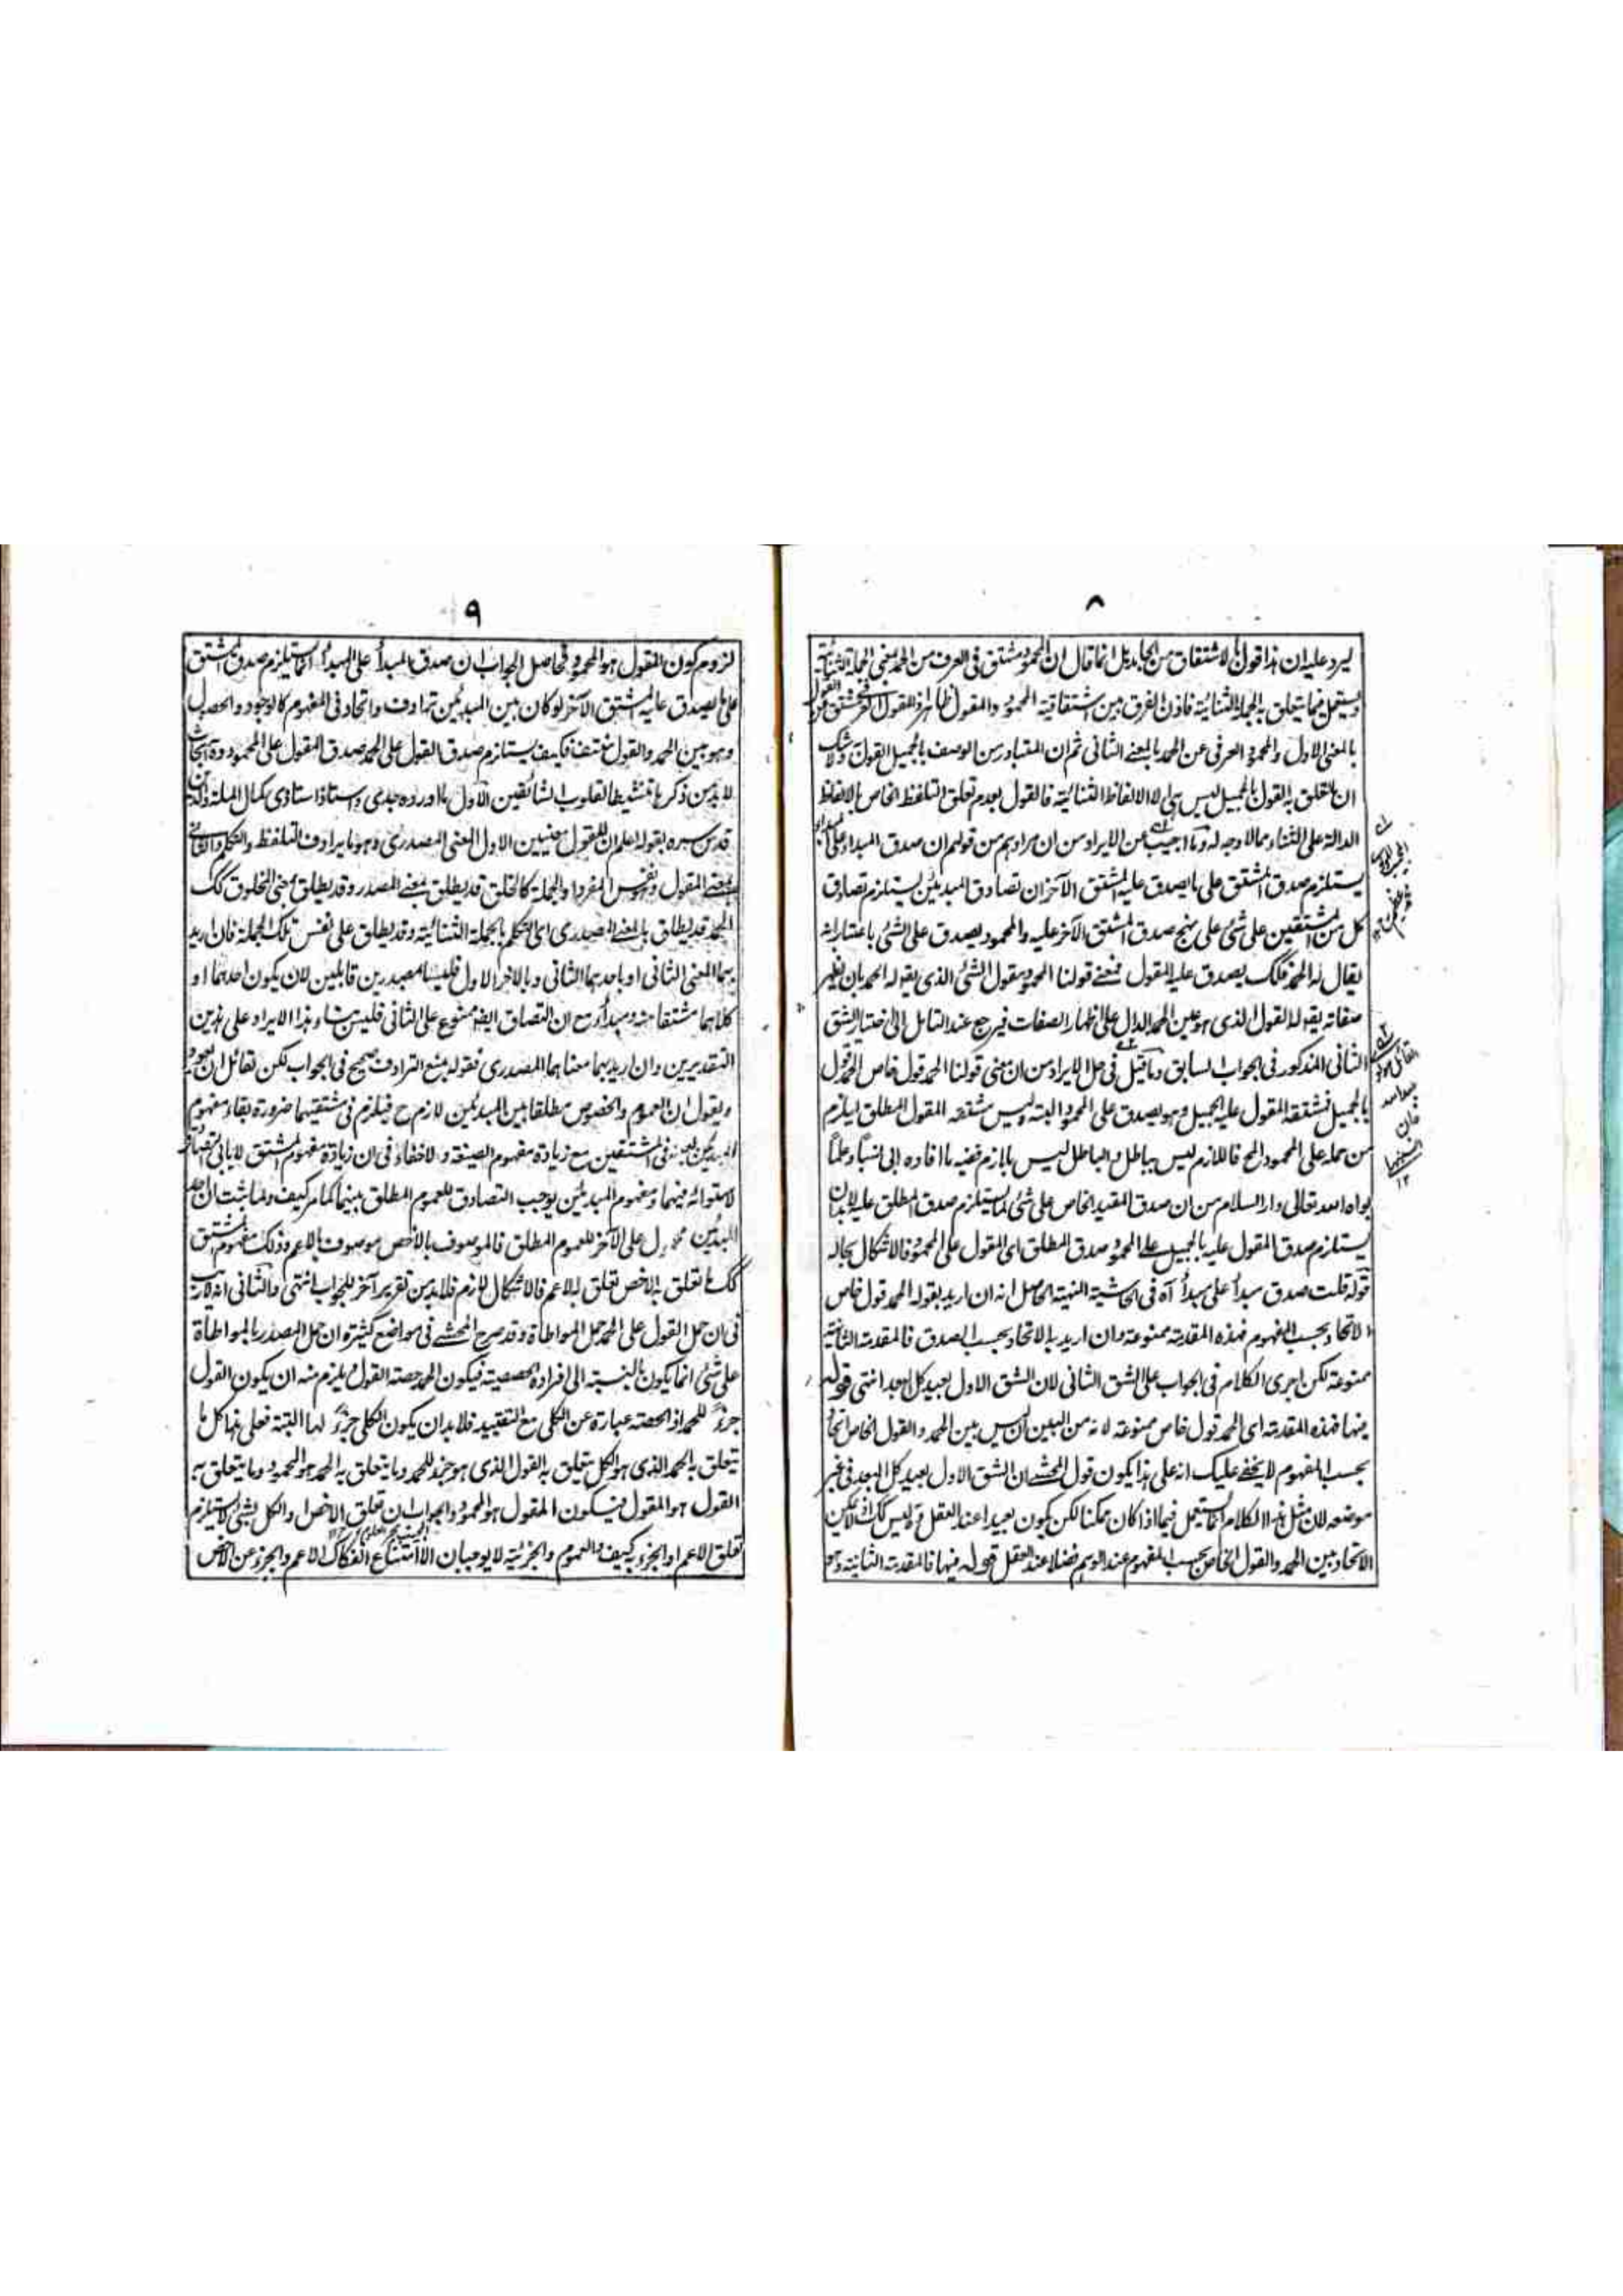 ٨
ليرد عليه ان هذا قول بالاشتقاق من الجامد بل انما قال ان المحمود مشتق فى العرف من الحمد بمعنى الجملة الثنائية
ويستعمل فيما يتعلق به الجملة الثنائية فاذن الفرق بين اشتقاقية المحمود والمقول ظاهر اذ المقول العرفى مشتق من القول
بالمعنى الاول والمحمود العرفى عن الحمد بالمعنى الثانى ثم ان المتبادر من الوصف بالجميل القول ولا شك
ان المتعلق به القول بالجميل ليس سوى الا الالفاظ الثنائية فالقول بعدم تعلق التلفظ الخاص بالالفاظ
الدالة على الثناء مما لا وجه له وما اجيب عن الايراد من ان مرادهم من قولهم ان صدق المبدا على المبدا
يستلزم صدق المشتق على ما يصدق عليه المشتق الآخر ان تصادق المبدئين يستلزم تصادق
كل من المشتقين على شئ على نهج صدق المشتق الآخر عليه والمحمود يصدق على الشئ باعتبار انه
يقال له الحمد فكك يصدق عليه المقول فمعنى قولنا المحمود مقول الشئ الذى يقول له الحمد بان يظهر
صفاته يقول له القول الذى هو عين الحمد الدال على اظهار الصفات فيرجع عند التامل الى اختيار الشق
الثانى المذكور فى الجواب السابق وما قيل فى حل الايراد من ان معنى قولنا الحمد قول خاص الحمد قول
بالجميل فمشتقه المقول عليه الجميل وهو يصدق على المحمود البتة وليس مشتقه المقول المطلق ليلزم
من حمله على المحمود الح فاللازم ليس بباطل والباطل ليس بلازم ففيه ما افاده ابى نسبا وعلما
بواه الله تعالى دار السلام من ان صدق المقيد الخاص على شئ لما يستلزم صدق المطلق عليه لابد ان
يستلزم صدق المقول عليه بالجميل على المحمود صدق المطلق اى المقول على المحمود فالاشكال بحاله
قوله قلت صدق مبدأ على مبدأ آه فى الحاشية النهية الحاصل انه ان اريد بقوله الحمد قول خاص
الاتحاد بحسب المفهوم فهذه المقدمة ممنوعة وان اريد به الاتحاد بحسب الصدق فالمقدمة الثانية
ممنوعة لكن اجرى الكلام فى الجواب على الشق الثانى لان الشق الاول بعيد كل البعد انتهى قوله
فيها فهذه المقدمة اى الحمد قول خاص ممنوعة لانه من البين ان ليس بين الحمد والقول الخاص اتحاد
بحسب المفهوم لا يخفى عليك انه على هذا يكون قول المحشى ان الشق الاول بعيد كل البعد فى غير
موضعه لان مثل هذا الكلام انما يستعمل فيما اذا كان ممكنا لكن يكون بعيدا عند العقل وليس كك اذ لا يمكن
الاتحاد بين الحمد والقول الخاص بحسب المفهوم عند الوهم فضلا عند العقل قوله فيها فالمقدمة الثانية وهو
٩
لزوم كون المقول هو المحمود فحاصل الجواب ان صدق المبدأ على المبدأ انما يستلزم صدق المشتق
على ما يصدق عليه المشتق الآخر لو كان بين المبدئين ترادف واتحاد فى المفهوم كالوجود والحصول
وهو بين الحمد والقول منتف فكيف يستلزم صدق القول على الحمد صدق المقول على المحمود وههنا ابحاث
لابد من ذكرها تنشيطا لقلوب الشائقين الاول ما اورده جدى واستاذ استاذى كمال الملة والدين
قدس سره بقوله اعلم ان للقول معنيين الاول المعنى المصدرى وهو ما يرادف التلفظ والتكلم والثانى
بمعنى المقول ونفس المفرد او الجملة كالخلق قد يطلق بمعنى المصدر وقد يطلق بمعنى المخلوق كك
الحمد قد يطلق بالمعنى المصدرى اى التكلم بالجملة الثنائية وقد يطلق على نفس تلك الجملة فان اريد
بهما المعنى الثانى او باحدهما الثانى وبالاخر الاول فليسا مصدرين قابلين لان يكون احدهما او
كلاهما مشتقا منه ومبدأ مع ان التصادق ايضا ممنوع على الثانى فليس بناء هذا الايراد على هذين
التقديرين وان اريد بهما معناهما المصدرى فقوله بمنع الترادف صحيح فى الجواب لكن لقائل ان يعود
ويقول ان العموم والخصوص مطلقا بين المبدئين لازم ح فيلزم فى مشتقيهما ضرورة بقاء مفهوم
المبدئين بعينه فى المشتقين مع زيادة مفهوم الصيغة ولا خفاء فى ان زيادة مفهوم المشتق لا يابى التصادق
لاستوائه فيهما ومفهوم المبدئين يوجب التصادق للعموم المطلق بينهما كما مر كيف ولما ثبت ان احد
المبدئين محمول على الآخر للعموم المطلق فالموصوف بالاخص موصوف بالاعم وذلك مفهوم المشتق
كك ما تعلق به الاخص تعلق به الاعم فالاشكال لازم فلابد من تقرير آخر للجواب انتهى والثانى انه لا ريب
فى ان حمل القول على الحمد حمل المواطاة وقد صرح المحشى فى مواضع كثيرة ان حمل المصدر بالمواطاة
على شئ انما يكون بالنسبة الى افراده الحصصية فيكون الحمد حصة القول ويلزم منه ان يكون القول
جزءً للحمد اذ الحصة عبارة عن الكلى مع التقييد فلابد ان يكون الكلى جزءً لها البتة فعلى هذا كل ما
يتعلق به الحمد الذى هو الكل يتعلق به القول الذى هو جزء للحمد وما يتعلق به الحمد هو المحمود وما يتعلق به
القول هو المقول فيكون المقول هو المحمود والجواب ان تعلق الاخص او الكل بشئ لا يستلزم
تعلق الاعم او الجزء به كيف والعموم والجزئية لا يوجبان الا امتناع انفكاك الاعم والجزء عن الاخص